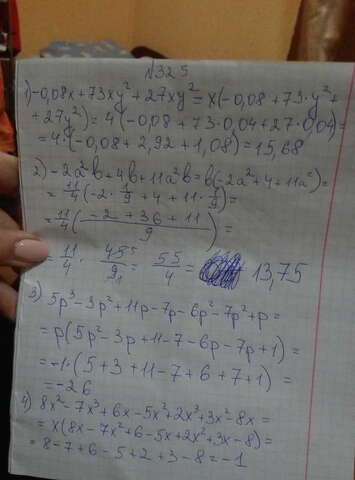 №325
1) -0,08x+73xy²+27xy²=x(-0,08+73·y²+
+27y²)=4(-0,08+73·0,04+27·0,04)=
=4·(-0,08+2,92+1,08)=15,68
2) -2a²b+4b+11a²b=b(-2a²+4+11a²)=
= 11/4(-2·1/9+4+11·1/9)=
= 11/4((-2+36+11)/9)=
= 11/4 · 45⁵/9₁ = 55/4 = 13,75
3) 5p³-3p²+11p-7p-6p²-7p²+p=
=p(5p²-3p+11-7-6p-7p+1)=
=-1·(5+3+11-7+6+7+1)=
=-26
4) 8x²-7x³+6x-5x²+2x³+3x²-8x=
=x(8x-7x²+6-5x+2x²+3x-8)=
=8-7+6-5+2+3-8=-1